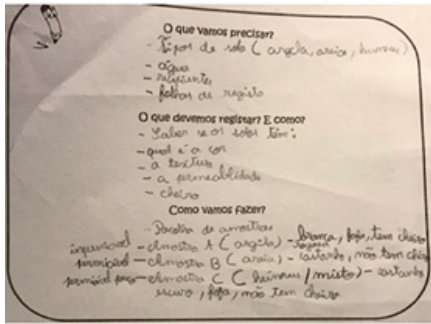 O que vamos precisar?
- Tipos de solo (argila, areia, humus)
- água
- recipientes
- folhas de registo
O que devemos registar? E como?
- Saber se os solos têm:
- qual é a cor
- a textura
- a permeabilidade
- cheiro
Como vamos fazer?
- Recolha de amostras
impermiável - amostra A (argila) - branca, fofa, tem cheiro
permiável - amostra B (areia) - castanho, não tem cheiro
permiável pouco - amostra C (humus/misto) - castanho
escuro, fofa, não tem cheiro